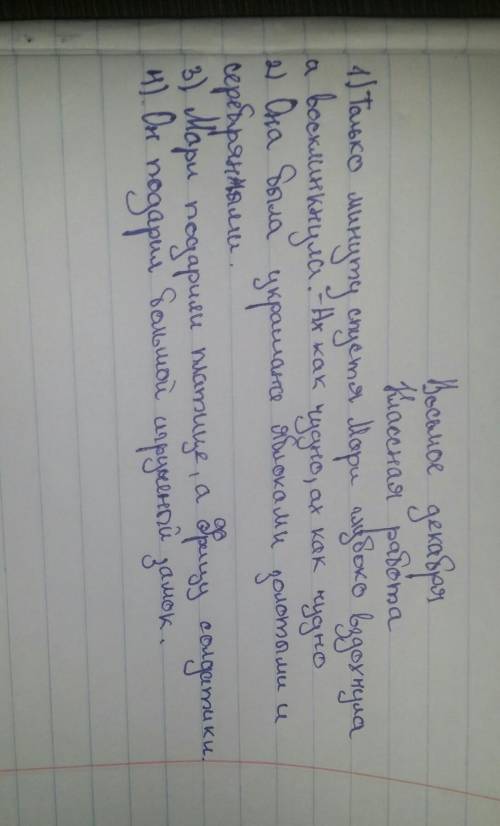 Восьмое декабря
Классная работа
1) Только минуту спустя Мари глубоко вздохнула
а воскликнула. - Ах как чудно, ах как чудно
2) Она была украшана яблоками золотыми и
серебрянными.
3) Мари подарили платице, а Фрицу солдатики.
4) Он подарил большой игрушеный замок.